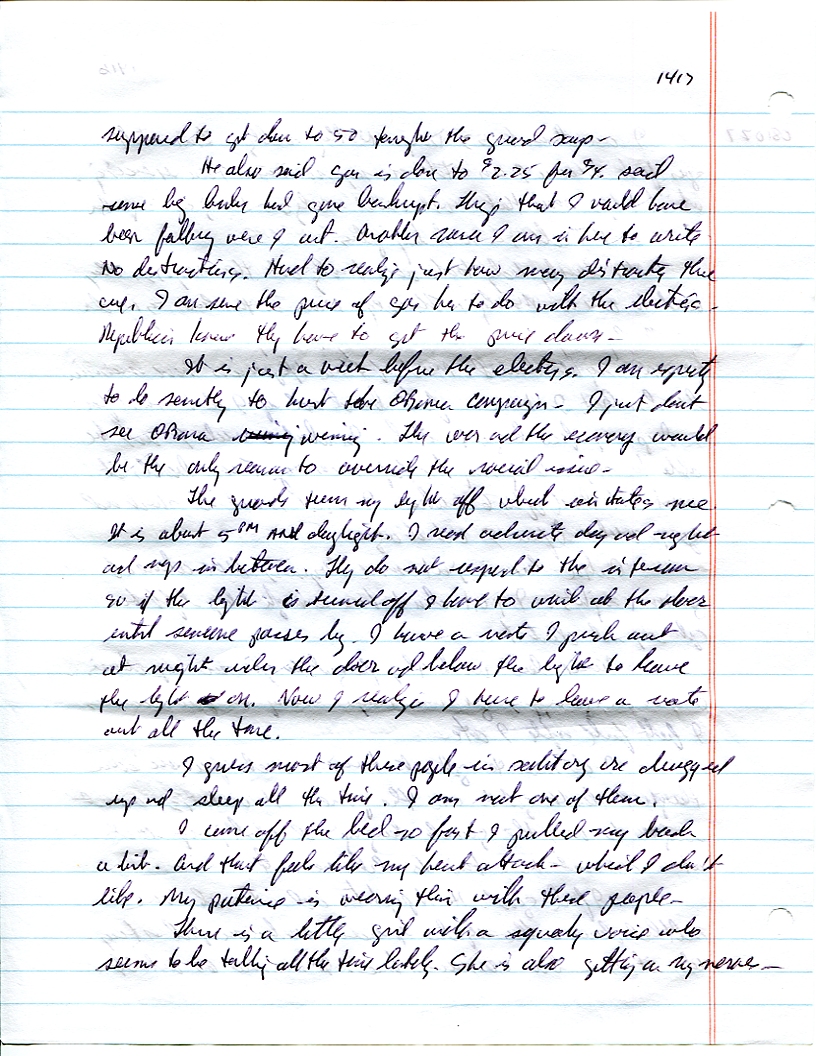 1417
supposed to get down to 50 tonight the guard says -
He also said gas is down to $2.25 per g. said
some big banks had gone bankrupt. Things that I would have
been following were I out. Another reason I am in here to write
No distractions. Hard to realize just how many distractions there
are. I am sure the price of gas has to do with the election -
Republicans know they have to get the price down -
It is just a week before the election. I am expecting
to do something to hurt the Obama campaign - I just don't
see Obama winning. The war and the economy would
be the only reason to override the racial issue -
The guards turn my light off which irritates me.
It is about 5 PM and daylight. I read and write day and night
and naps in between. They do not respond to the intercom
so if the light is turned off I have to wait at the door
until someone passes by. I have a note I push out
at night under the door and below the light to leave
the light on. Now I realize I have to leave a note
out all the time.
I guess most of these people in solitary are drugged
up and sleep all the time. I am not one of them.
I came off the bed so fast I pulled my back
a bit. And that feels like my heart attack - which I don't
like. My patience is wearing thin with these people -
There is a little girl with a squeaky voice who
seems to be talking all the time lately. She is also getting on my nerves -